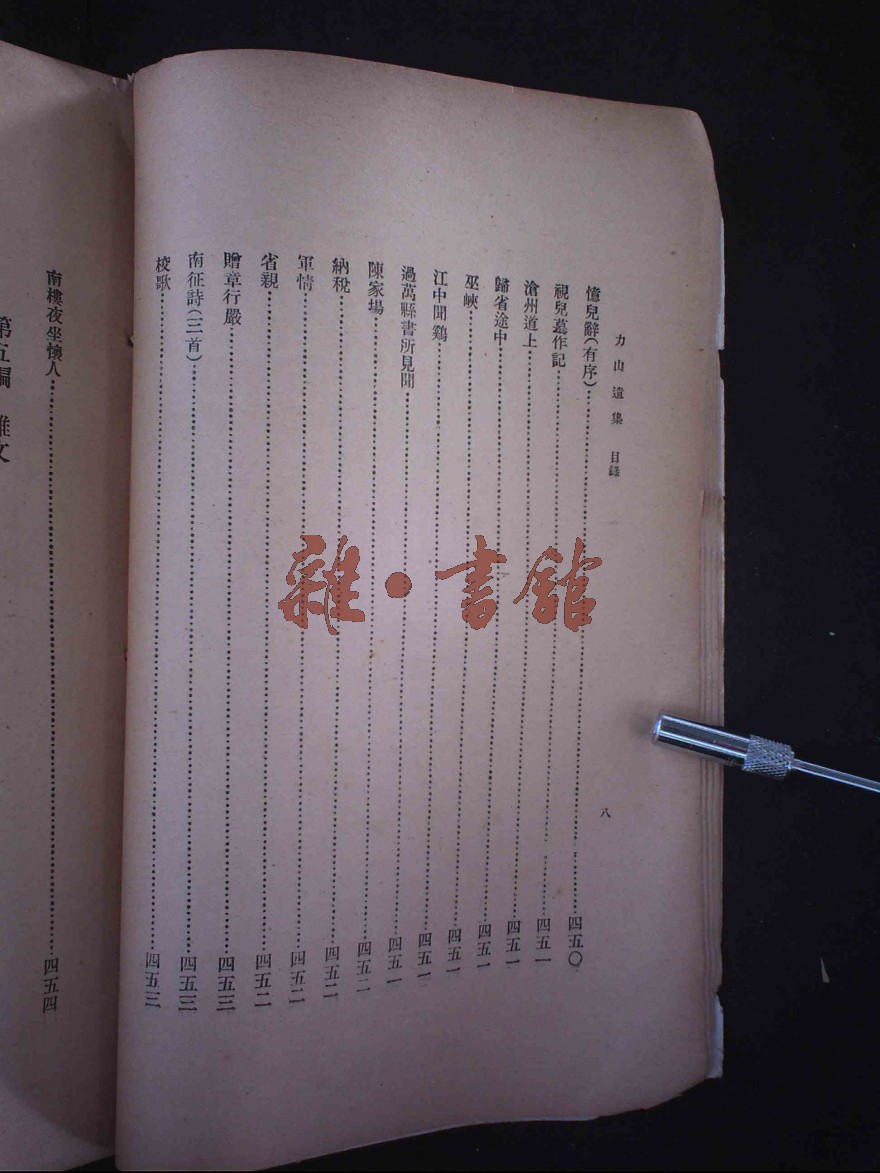 力山遺集　目錄
八
憶兒辭(有序)……四五〇
視兒墓作記……四五一
滄州道上……四五一
歸省途中……四五一
巫峽……四五一
江中聞鷄……四五一
過萬縣書所見聞……四五一
陳家場……四五二
納稅……四五二
軍情……四五二
省親……四五二
贈章行嚴……四五三
南征詩(三首)……四五三
校歌……四五三
南樓夜坐懷人……四五四
第五編　雜文
雜・書館